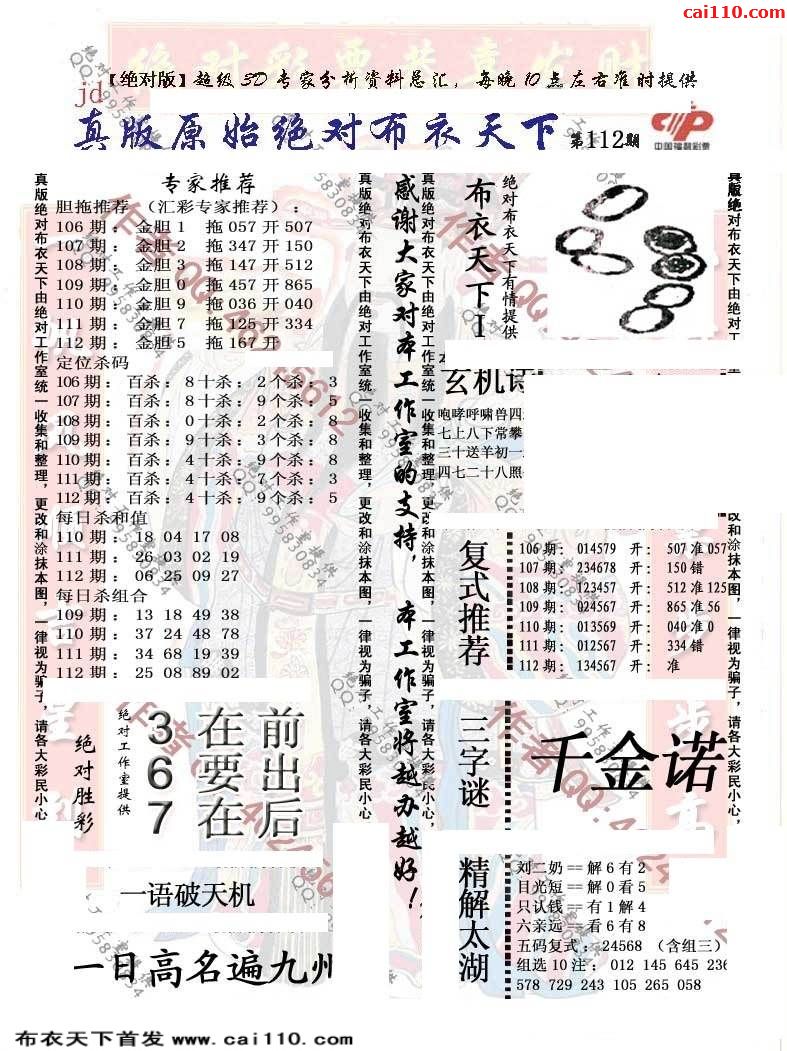 cai110.com
【绝对版】超级3D专家分析资料总汇，每晚10点左右准时提供
jd
真版原始绝对布衣天下 第112期
中国福利彩票
真版绝对布衣天下由绝对工作室统一收集和整理，更改和涂抹本图，一律视为骗子，请各大彩民小心，
专家推荐
胆拖推荐 （汇彩专家推荐）：
106期： 金胆1 拖057开507
107期： 金胆2 拖347开150
108期： 金胆3 拖147开512
109期： 金胆0 拖457开865
110期： 金胆9 拖036开040
111期： 金胆7 拖125开334
112期： 金胆5 拖167开
定位杀码
106期： 百杀： 8十杀： 2个杀： 3
107期： 百杀： 8十杀： 9个杀： 5
108期： 百杀： 0十杀： 2个杀： 8
109期： 百杀： 9十杀： 3个杀： 8
110期： 百杀： 4十杀： 9个杀： 8
111期： 百杀： 4十杀： 7个杀： 3
112期： 百杀： 4十杀： 9个杀： 5
每日杀和值
110期： 18 04 17 08
111期： 26 03 02 19
112期： 06 25 09 27
每日杀组合
109期： 13 18 49 38
110期： 37 24 48 78
111期： 34 68 19 39
112期： 25 08 89 02
绝对胜彩
绝对工作室提供
3在前
6要出
7在后
一语破天机
一日高名遍九州
真版绝对布衣天下由绝对工作室统一收集和整理，更改和涂抹本图，一律视为骗子，请各大彩民小心，
感谢大家对本工作室的支持，本工作室将越办越好！
真版绝对布衣天下由绝对工作室统一收集和整理，更改和涂抹本图，一律视为骗子，请各大彩民小心，
布衣天下I
绝对布衣天下有情提供
玄机诗
咆哮呼啸兽四
七上八下常攀
三十送羊初一
四七二十八照
复式推荐
106期： 014579 开： 507准057
107期： 234678 开： 150错
108期： 123457 开： 512准125
109期： 024567 开： 865准56
110期： 013569 开： 040准0
111期： 012567 开： 334错
112期： 134567 开： 准
三字谜
千金诺
精解太湖
刘二奶==解6有2
目光短==解0看5
只认钱==有1解4
六亲远==看6有8
五码复式：24568 （含组三）
组选10注： 012 145 645 236
578 729 243 105 265 058
真版绝对布衣天下由绝对工
改和涂抹本图，一律视为骗子，请各大彩民小心，
布衣天下首发 www.cai110.com